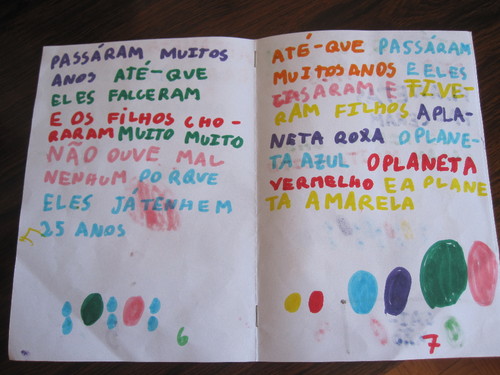 PASSÁRAM MUITOS
ANOS ATÉ-QUE
ELES FALCERAM
E OS FILHOS CHO-
RARAM MUITO MUITO
NÃO OUVE MAL
NENHUM PORQUE
ELES JÁ TENHEM
25 ANOS
6
ATÉ-QUE PASSÁRAM
MUITOS ANOS E ELES
CASARAM E TIVE-
RAM FILHOS ÁPLA-
NETA ROXA O PLANE-
TA AZUL O PLANETA
VERMELHO E A PLANE
TA AMARELA
7